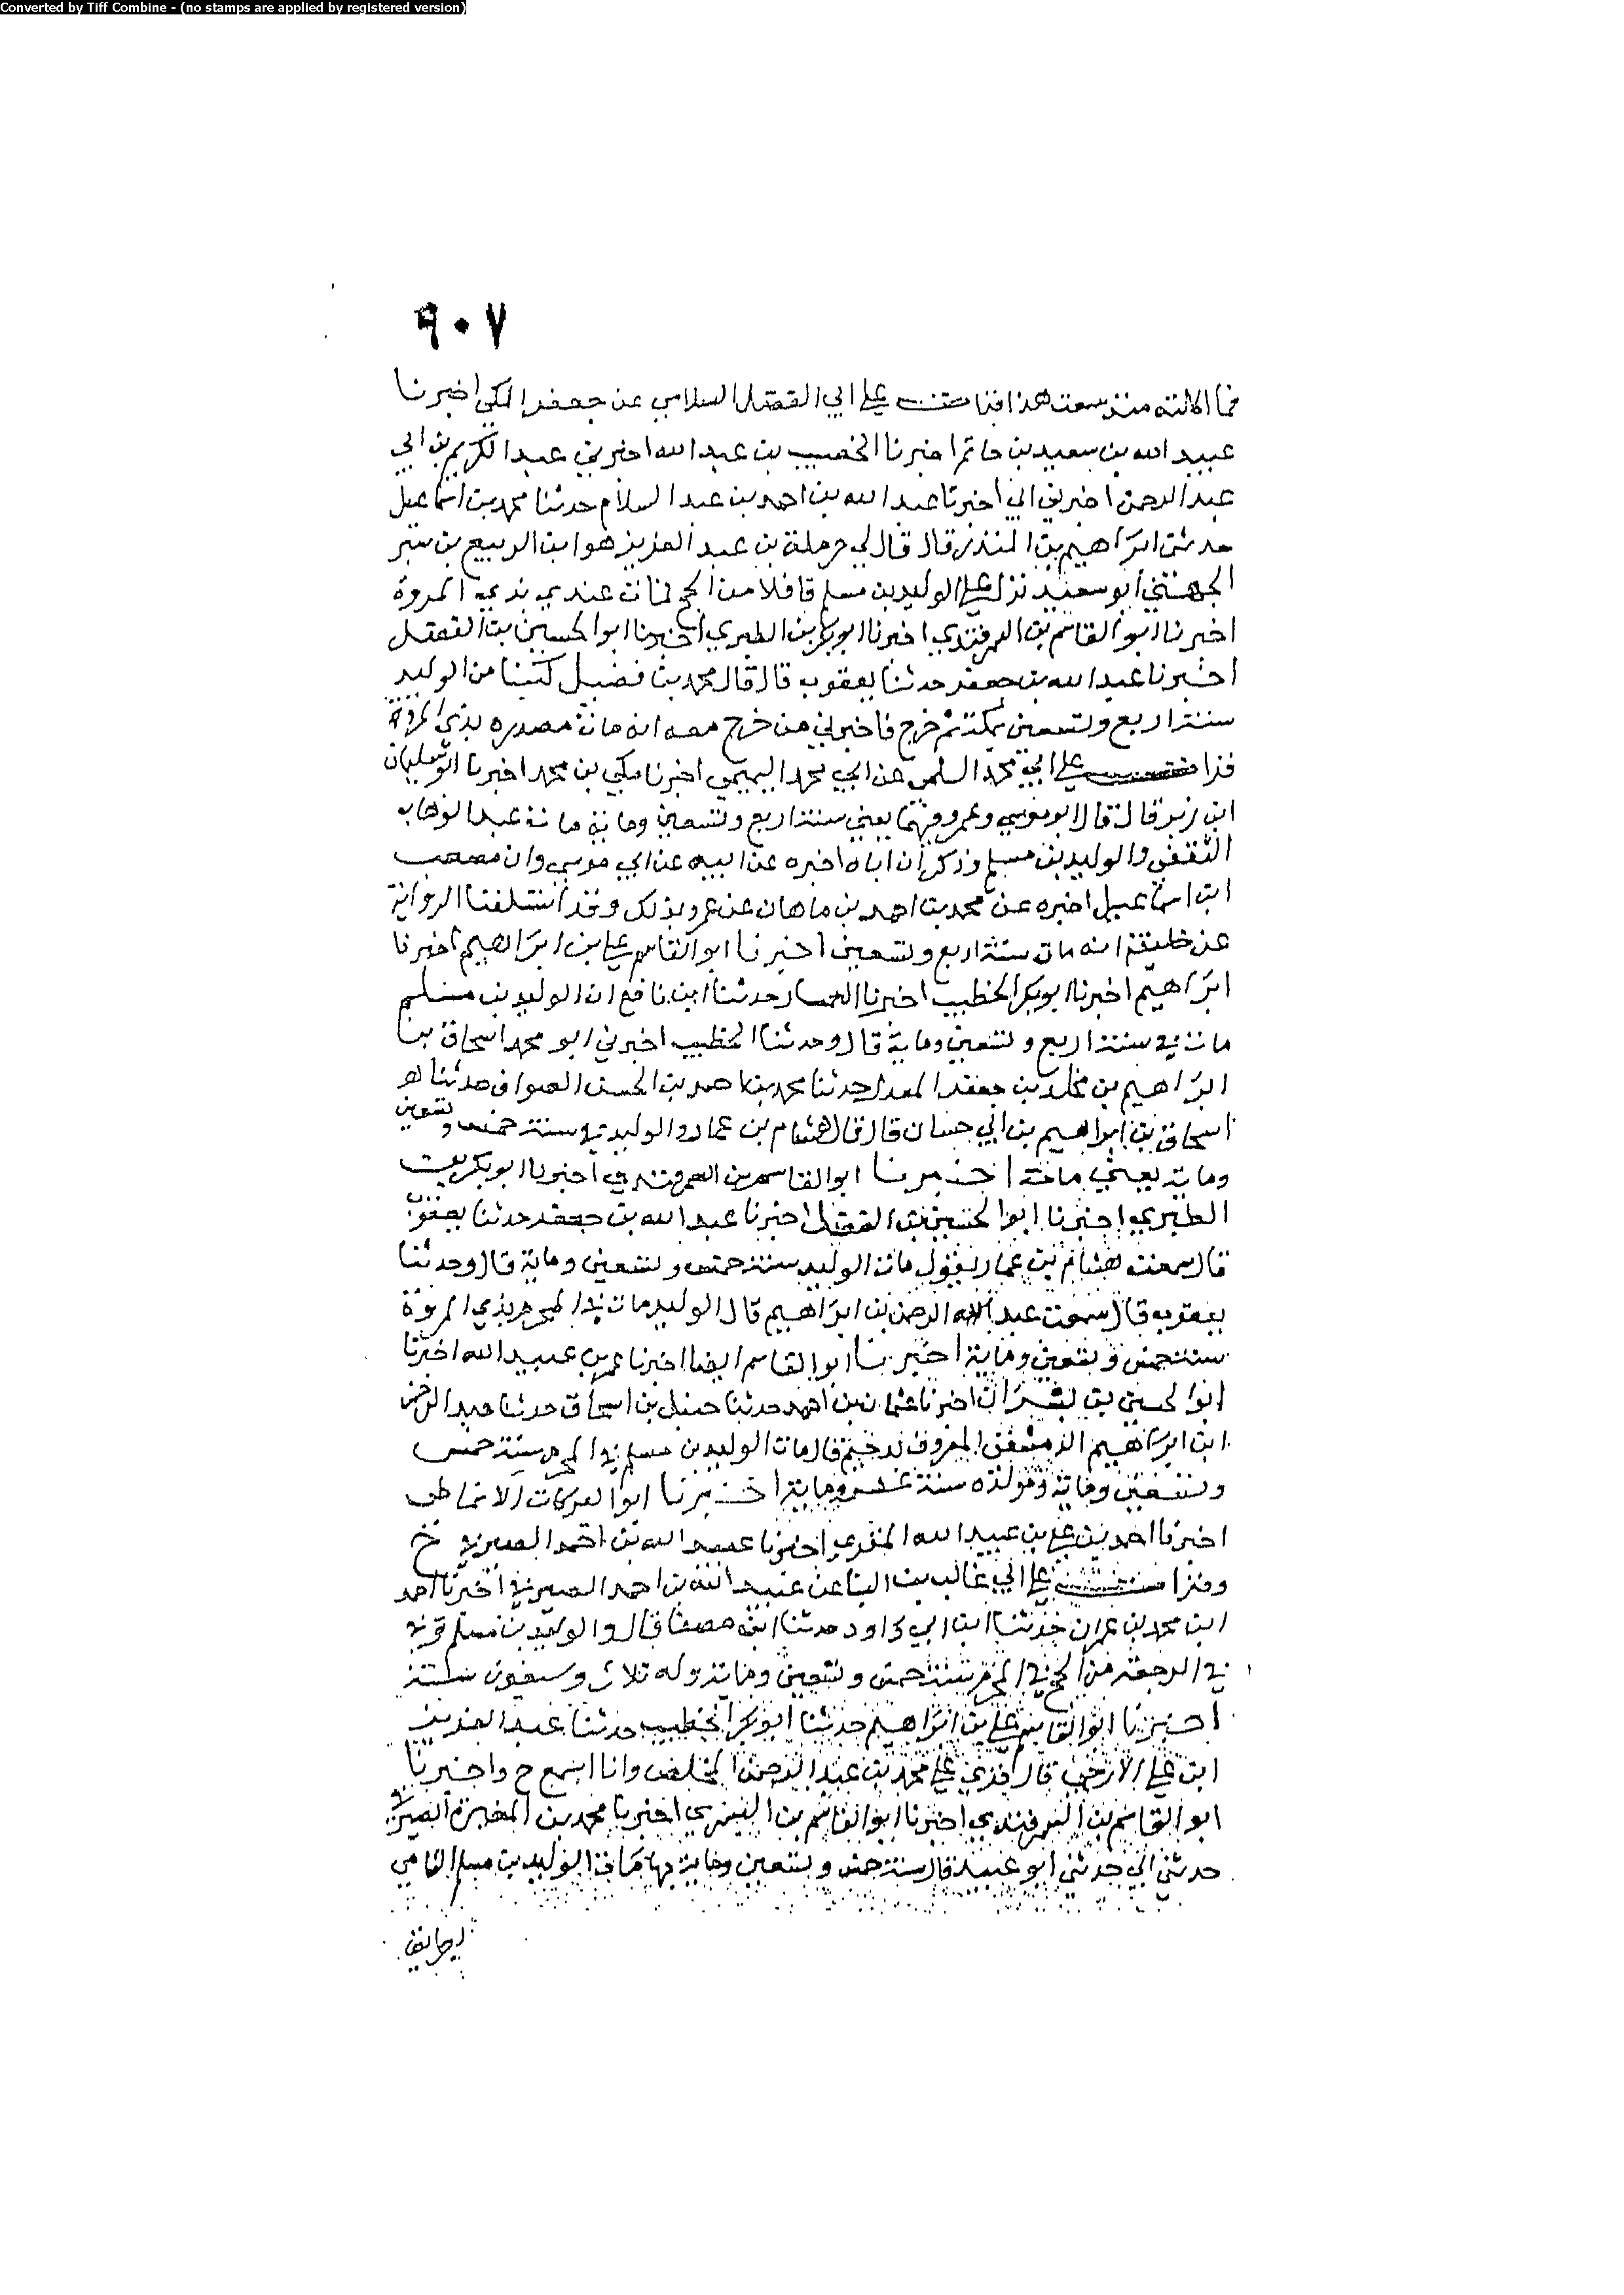 Converted by Tiff Combine - (no stamps are applied by registered version)
٩٠٧
منذ سمعت هذا قرات على ابي الفضل السلامي عن جعفر المكي اخبرنا
عبيد الله بن سعيد بن حاتم اخبرنا الخصيب بن عبد الله اخبرني عبد الكريم بن ابي
عبد الرحمن اخبرني ابي اخبرنا عبد الله بن احمد بن عبد السلام حدثنا محمد بن اسماعيل
حدثني ابراهيم بن المنذر قال قال لي حرملة بن عبد العزيز هو ابن الربيع بن سبر
الجهني ابو سعيد نزل علي الوليد بن مسلم قافلا من الحج فمات عندي بذي المروة
اخبرنا ابو القاسم بن السمرقندي اخبرنا ابو بكر بن الطبري اخبرنا ابو الحسين بن الفضل
اخبرنا عبد الله بن جعفر حدثنا يعقوب قال قال محمد بن فضيل كتبنا من الوليد
سنة اربع وتسعين بمكة ثم خرج فاخبرني من خرج معه انه مات مصدره بذي المروة
قرات على ابي محمد السلمي عن ابي محمد التميمي اخبرنا مكي بن محمد اخبرنا ابو سليمان
ابن زبر قال قال ابو موسي وعمرو فيها يعني سنة اربع وتسعين وماية مات عبد الوهاب
الثقفي والوليد بن مسلم وذكر ان اباه اخبره عن ابيه عن ابي موسي وان مصعب
ابن اسماعيل اخبره عن محمد بن احمد بن ماهان عن عمرو بذلك وقد اختلفت الرواية
عن خليفة انه مات سنة اربع وتسعين اخبرنا ابو القاسم علي بن ابراهيم اخبرنا
ابراهيم اخبرنا ابو بكر الخطيب اخبرنا حدثنا ابن نافع ان الوليد بن مسلم
مات في سنة اربع وتسعين وماية قال وحدثنا الخطيب اخبرني ابو محمد اسحاق بن
ابراهيم بن مخلد بن جعفر المعدل حدثنا محمد بن احمد بن الحسن الصواف حدثنا
اسحاق بن ابراهيم بن ابي حسان قال قال هشام بن عمار والوليد في سنة خمس وتسعين
وماية يعني مات اخبرنا ابو القاسم بن السمرقندي اخبرنا ابو بكر بن
الطبري اخبرنا ابو الحسين بن الفضل اخبرنا عبد الله بن جعفر حدثنا يعقوب
قال سمعت هشام بن عمار يقول مات الوليد سنة خمس وتسعين وماية قال وحدثنا
يعقوب قال سمعت عبد الرحمن بن ابراهيم قال الوليد مات في المحرم بذي المروة
سنة خمس وتسعين وماية اخبرنا ابو القاسم ايضا اخبرنا عمر بن عبيد الله اخبرنا
ابو الحسين بن بشران اخبرنا عثمان بن احمد حدثنا حنبل بن اسحاق حدثنا عبد الرحمن
ابن ابراهيم الدمشقي المعروف بدحيم قال مات الوليد بن مسلم في المحرم سنة خمس
وتسعين وماية ومولده سنة عشر وماية اخبرنا ابو البركات الانماطي
اخبرنا احمد بن علي بن عبيد الله المقري اخبرنا عبيد الله بن احمد الصيرفي ح
وقرات على ابي غالب بن البنا عن عبيد الله بن احمد الصيرفي اخبرنا احمد
ابن محمد بن عمران حدثنا ابن ابي داود حدثنا ابن مصفا قال والوليد بن مسلم توفي
في الرجعة من الحج في المحرم سنة خمس وتسعين وماية وله ثلاث وسبعون سنة
اخبرنا ابو القاسم علي بن ابراهيم حدثنا ابو بكر الخطيب حدثنا عبد العزيز
ابن علي الازجي قال قري علي محمد بن عبد الرحمن المخلص وانا اسمع ح واخبرنا
ابو القاسم بن السمرقندي اخبرنا ابو القاسم بن البسري اخبرنا محمد بن المغيرة
حدثني ابي حدثني ابو عبيد قال سنة خمس وتسعين وماية بها مات الوليد بن مسلم الشامي